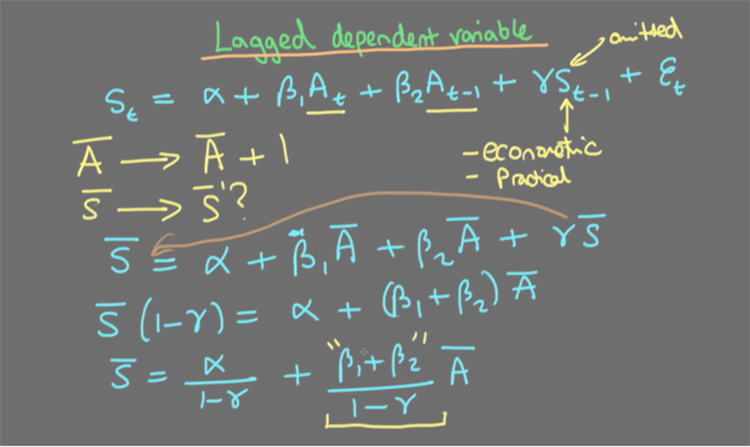 Lagged dependent variable
omitted
Sₜ = α + β₁Aₜ + β₂Aₜ₋₁ + γSₜ₋₁ + εₜ
A̅ → A̅ + 1
- econometric
S̅ → S̅'?
- Practical
S̅ = α + β₁A̅ + β₂A̅ + γS̅
S̅ (1-γ) = α + (β₁+β₂) A̅
S̅ = α/(1-γ) + "β₁+β₂"/(1-γ) A̅